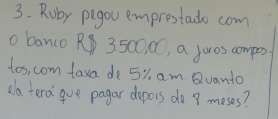 3. Ruby pegou emprestado com
o banco R$ 3.500,00, a juros compos-
tos, com taxa de 5% a.m. Quanto
ela terá que pagar depois de 8 meses?